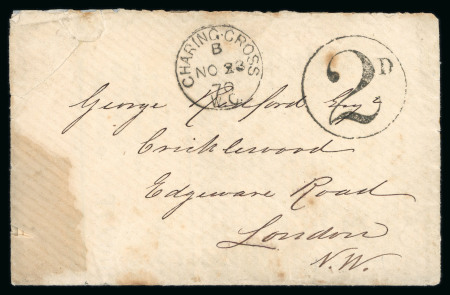 CHARING·CROSS
B
NO 23
78
W.C.
2D
George Esqe
Cricklewood
Edgeware Road
London
N.W.